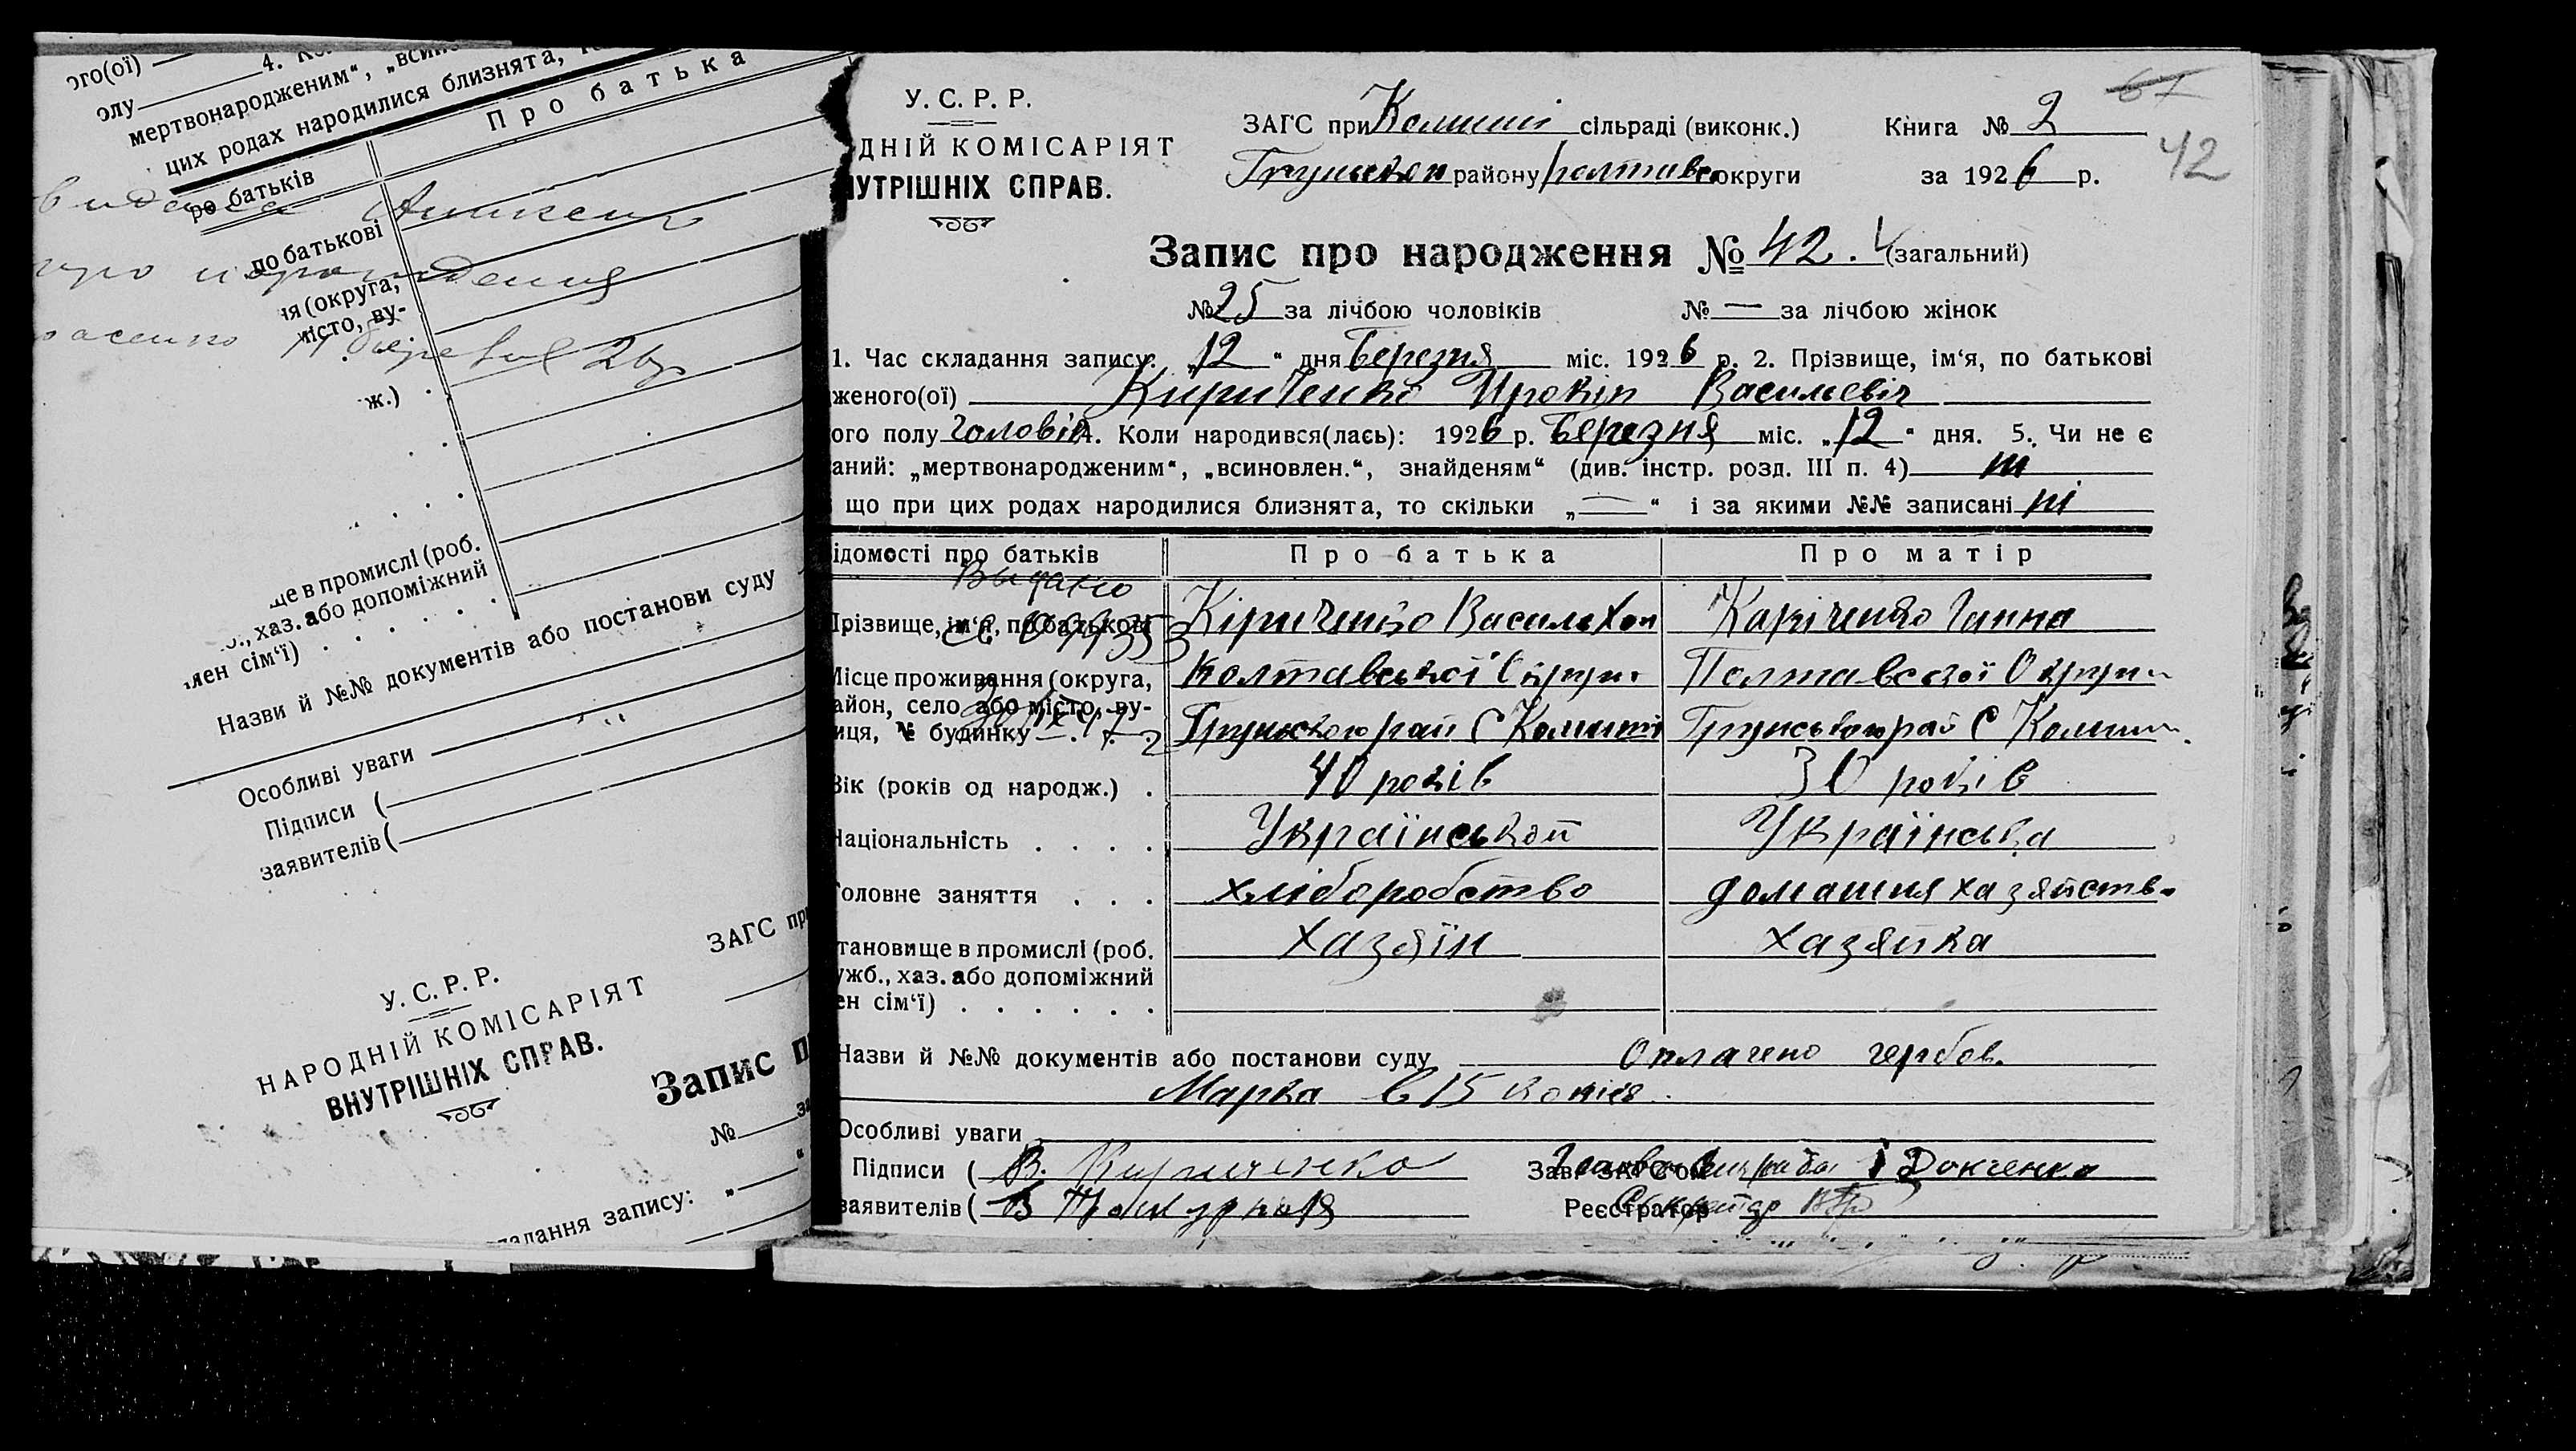 ого(ої)
олу 4.
мертвонародженим“, „всин
цих родах народилися близнята,
Про батька
ро батьків
по батькові
ня (округа,
місто, ву-
ж.)
ще в промислі (роб.
., хаз. або допоміжний
лен сім‘ї)
Назви й №№ документів або постанови суду
Особливі уваги
Підписи (
заявителів (
ЗАГС пр
У. С. Р. Р.
НАРОДНІЙ КОМІСАРІЯТ
ВНУТРІШНІХ СПРАВ.
Запис п
№
адання запису: „ “
У. С. Р. Р.
ДНІЙ КОМІСАРІЯТ
НУТРІШНІХ СПРАВ.
ЗАГС при сільраді (виконк.) Книга № 2
району округи за 1926 р.
42
Запис про народження № 42. (загальний)
№ 25 за лічбою чоловіків № — за лічбою жінок
1. Час складання запису: „12“ дня Березня міс. 1926 р. 2. Прізвище, ім‘я, по батькові
женого(ої) Кириченко Прокіп Васильевіч
ого полу 4. Коли народився(лась): 1926 р. Березня міс. „12“ дня. 5. Чи не є
аний: „мертвонародженим“, „всиновлен.“, знайденям“ (див. інстр. розд. III п. 4) ні
що при цих родах народилися близнята, то скільки „—“ і за якими №№ записані ні
ідомості про батьків Про батька Про матір
Выдано
Прізвище, ім‘я, по батькові Кіриченко Василь Ганна
Місце проживання (округа, Полтавської Округи Полтавської Округи
айон, село або місто, ву-
иця, № будинку
Вік (років од народж.) . 40 років 30 років
Національність . . . . Український Українська
Головне заняття . . . хліборобство домашня хазяйство
тановище в промислі (роб. Хазяїн Хазяйка
ужб., хаз. або допоміжний
ен сім‘ї) . . . . . .
Назви й №№ документів або постанови суду Оплачено гербов.
Марка в 15 копієк.
Особливі уваги
Підписи ( В. Кириченко Зав. ЗАГСом
заявителів ( Реєстратор